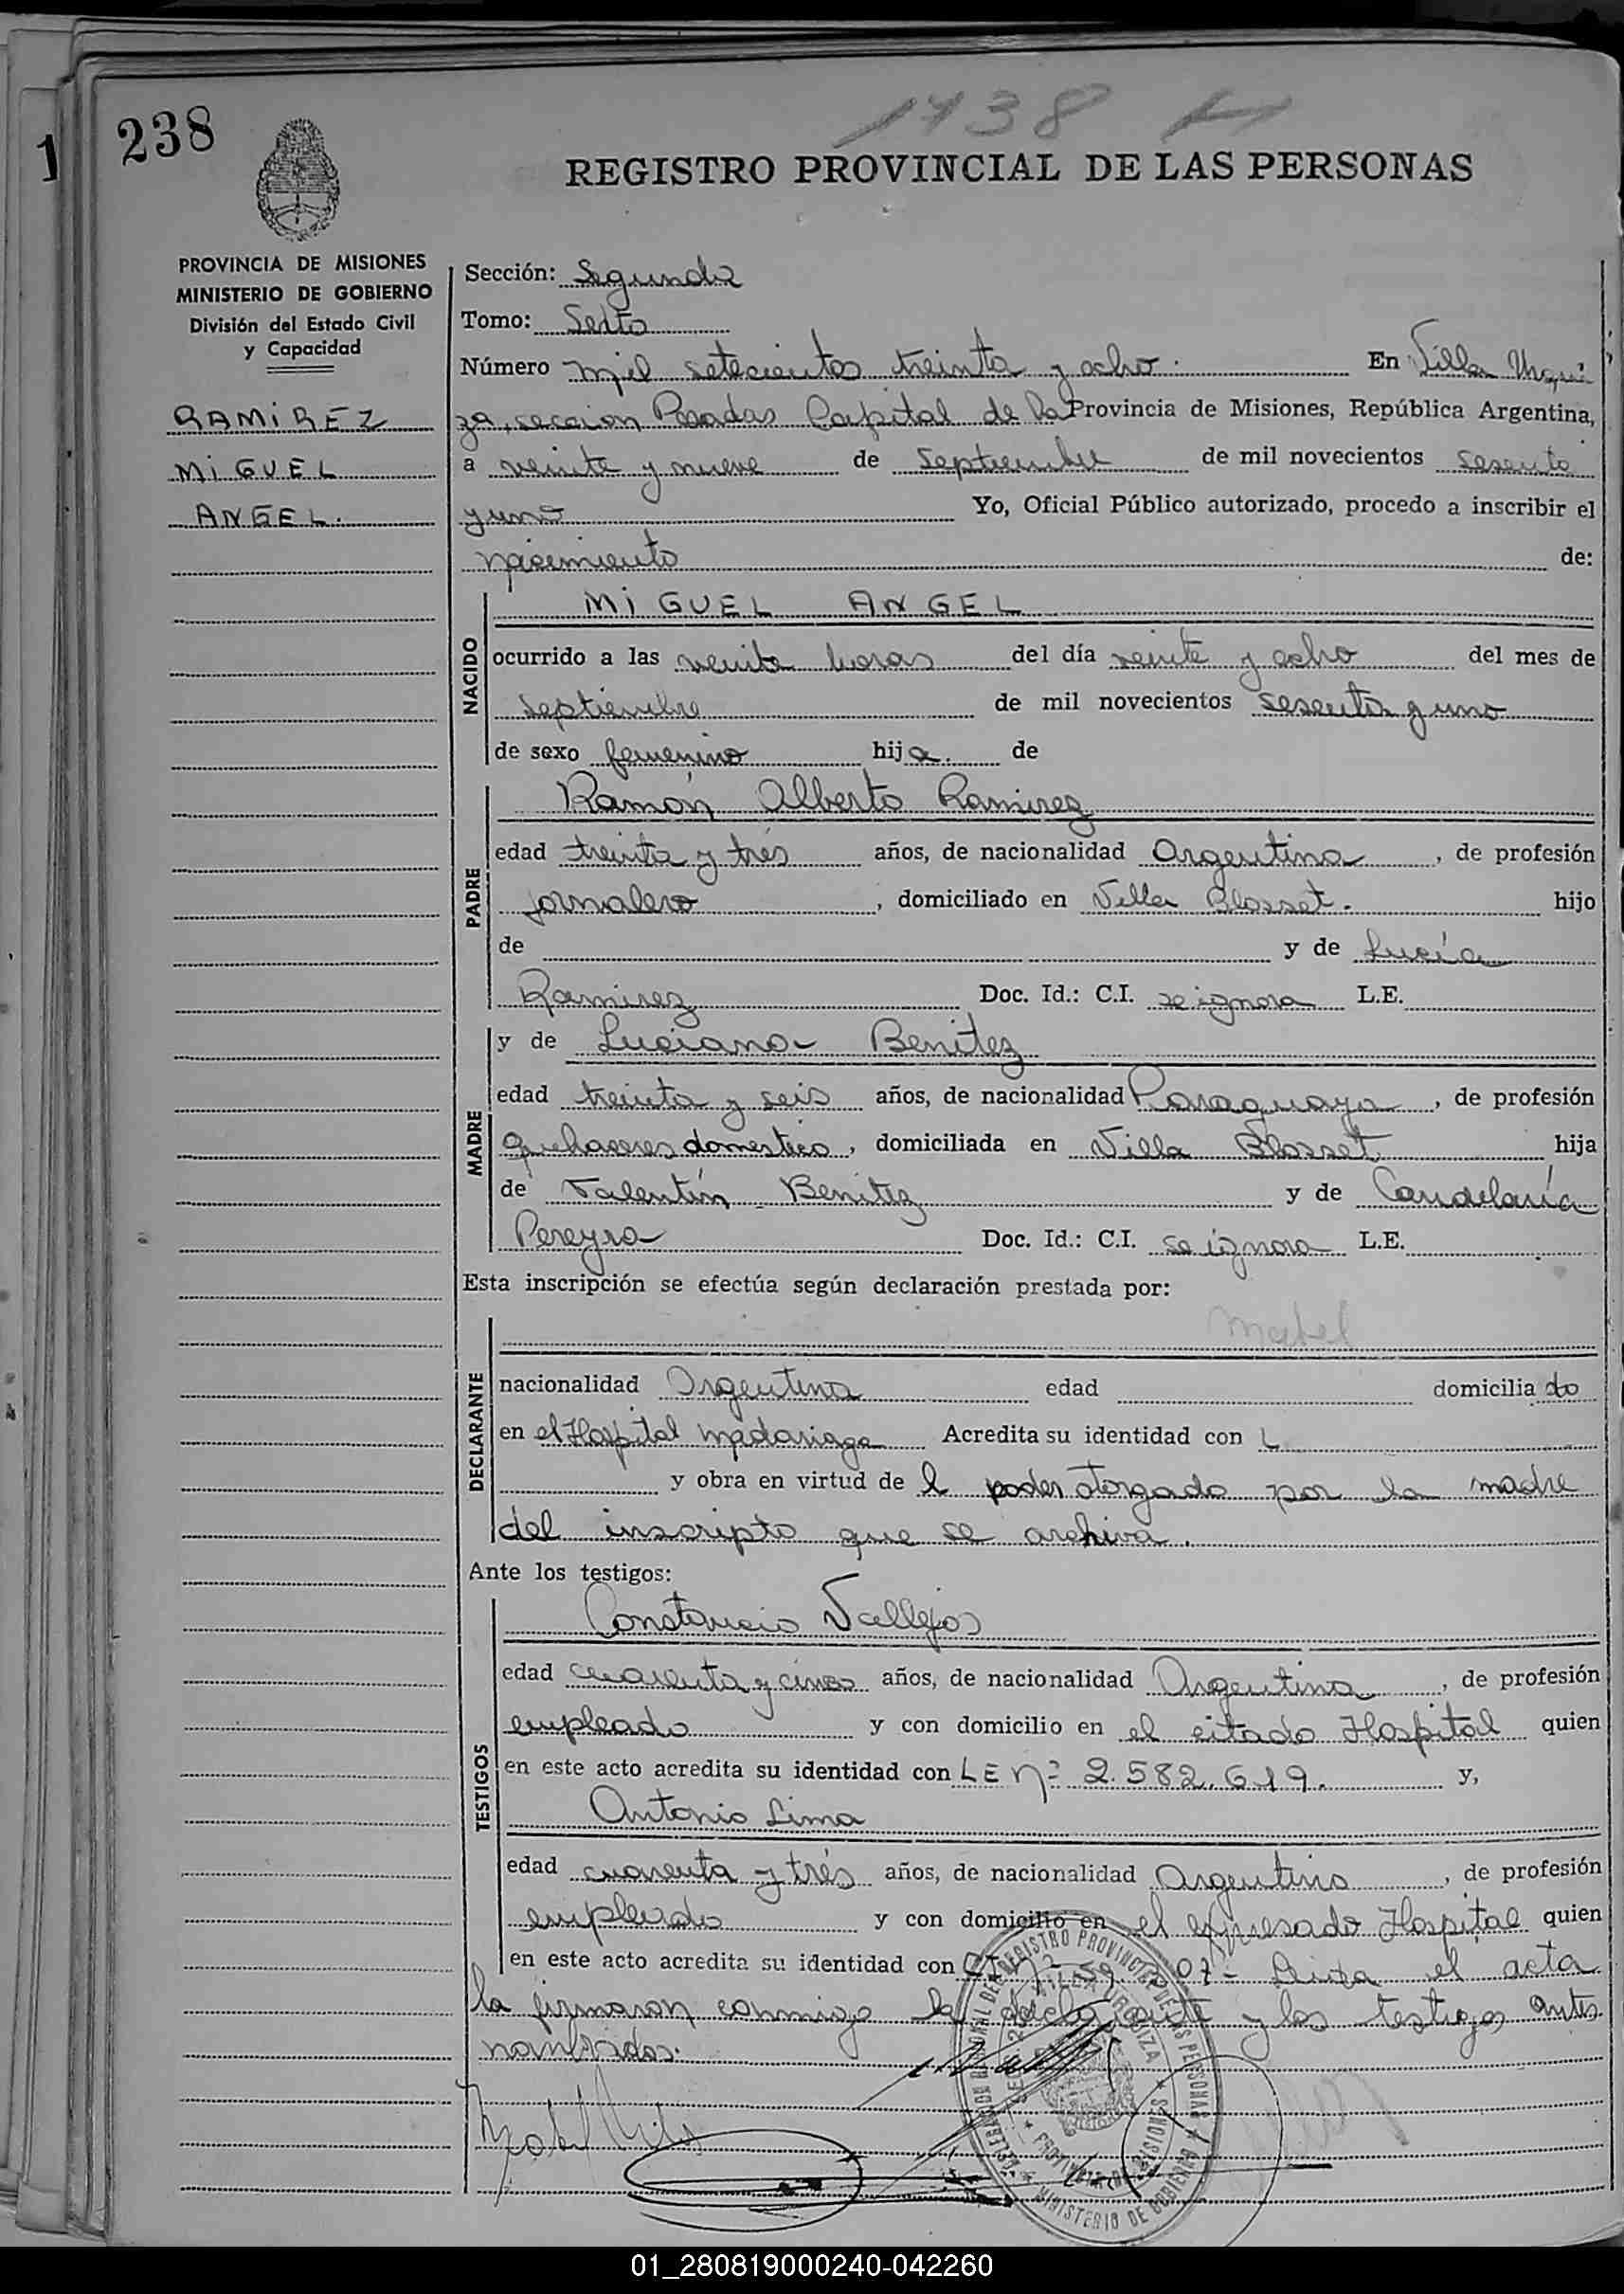 1738
238
1
REGISTRO PROVINCIAL DE LAS PERSONAS
PROVINCIA DE MISIONES
MINISTERIO DE GOBIERNO
División del Estado Civil
y Capacidad
RAMIREZ
MIGUEL
ANGEL.
Sección: Segunda
Tomo: Sexto
Número mil setecientos treinta y ocho. En Villa Urqui
za, seccion Posadas Capital de la Provincia de Misiones, República Argentina,
a veinte y nueve de Septiembre de mil novecientos sesenta
y uno Yo, Oficial Público autorizado, procedo a inscribir el
nacimiento de:
NACIDO
MIGUEL ANGEL
ocurrido a las veinte horas del día veinte y ocho del mes de
septiembre de mil novecientos sesenta y uno
de sexo femenino hija. de
PADRE
Ramón Alberto Ramirez
edad treinta y tres años, de nacionalidad Argentina, de profesión
jornalero, domiciliado en Villa Blosset. hijo
de y de Lucía
Ramirez Doc. Id.: C.I. se ignora L.E.
MADRE
y de Luciana Benitez
edad treinta y seis años, de nacionalidad Paraguaya, de profesión
quehaceres domestico, domiciliada en Villa Blosset hija
de Valentín Benitez y de Candelaría
Pereyra Doc. Id.: C.I. se ignora L.E.
Esta inscripción se efectúa según declaración prestada por:
DECLARANTE
Mabel
nacionalidad Argentina edad domiciliado
en el Hospital Madariaga Acredita su identidad con
y obra en virtud de l poder otorgado por la madre
del inscripto que se archiva.
Ante los testigos:
TESTIGOS
Constancio Vallejos
edad cuarenta y cinco años, de nacionalidad Argentina, de profesión
empleado y con domicilio en el citado Hospital quien
en este acto acredita su identidad con LE nº 2.582.619. y,
Antonio Lima
edad cuarenta y trés años, de nacionalidad Argentina, de profesión
empleado y con domicilio en el expresado Hospital quien
en este acto acredita su identidad con CI nº 59. 07- Leida el acta
la firmaron conmigo la declarante y los testigos antes
nombrados.
01_280819000240-042260